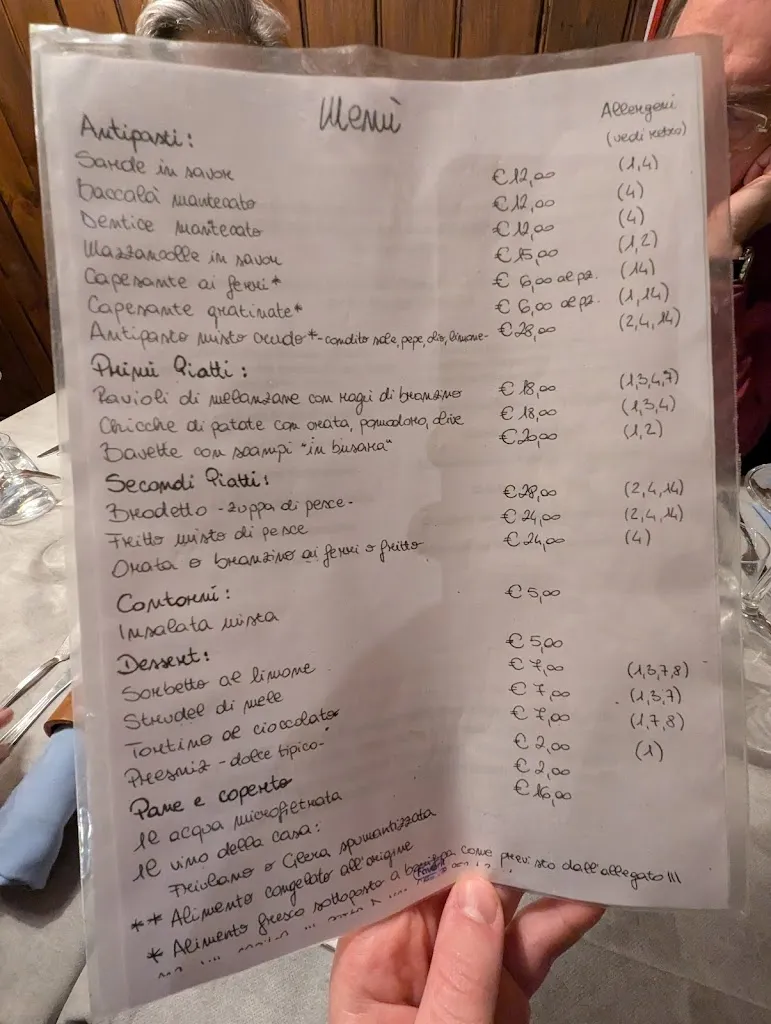 Menù
Allergeni
(vedi retro)
Antipasti:
Sarde in savor €12,00 (1,4)
Baccalà mantecato €12,00 (4)
Dentice mantecato €12,00 (4)
Mazzancolle in savor €15,00 (1,2)
Capesante ai ferri* € 6,00 al pz. (14)
Capesante gratinate* € 6,00 al pz. (1,14)
Antipasto misto crudo*-condito sale, pepe, olio, limone- €28,00 (2,4,14)
Primi Piatti:
Ravioli di melanzane con ragù di branzino € 18,00 (1,3,4,7)
Chicche di patate con orata, pomodoro, olive € 18,00 (1,3,4)
Bavette con scampi "in busara" €20,00 (1,2)
Secondi Piatti:
Brodetto -zuppa di pesce- €28,00 (2,4,14)
Fritto misto di pesce €24,00 (2,4,14)
Orata o branzino ai ferri o fritto €24,00 (4)
Contorni:
Insalata mista €5,00
Dessert:
Sorbetto al limone €5,00
Strudel di mele €7,00 (1,3,7,8)
Tortino al cioccolato €7,00 (1,3,7)
Presniz -dolce tipico- €7,00 (1,7,8)
Pane e coperto €2,00 (1)
1l acqua microfiltrata €2,00
1l vino della casa: €16,00
Friulano o Glera spumantizzata
** Alimento congelato all'origine
* Alimento fresco sottoposto a come previsto dall'allegato III